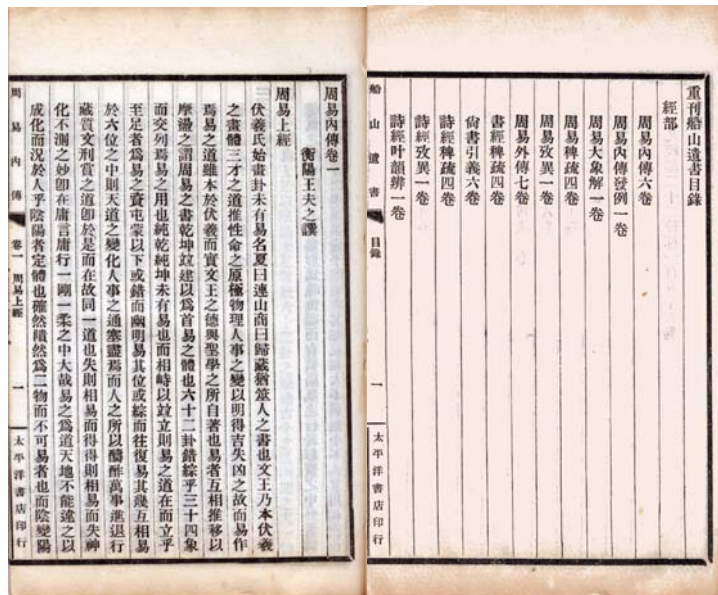 重刊船山遺書目錄
經部
周易內傳六卷
周易內傳發例一卷
周易大象解一卷
周易稗疏四卷
周易攷異一卷
周易外傳七卷
書經稗疏四卷
尙書引義六卷
詩經稗疏四卷
詩經攷異一卷
詩經叶韻辨一卷
船山遺書 目錄 一 太平洋書店印行
周易內傳卷一
衡陽王夫之譔
周易上經
伏羲氏始畫卦未有易名夏曰連山商曰歸藏猶筮人之書也文王乃本伏羲
之畫體三才之道推性命之原極物理人事之變以明得吉失凶之故而易作
焉易之道雖本於伏羲而實文王之德與聖學之所自著也易者互相推移以
摩盪之謂周易之書乾坤竝建以爲首易之體也六十二卦錯綜乎三十四象
而交列焉易之用也純乾純坤未有易也而相峙以竝立則易之道在而立乎
至足者爲易之資屯蒙以下或錯而幽明易其位或綜而往復易其幾互相易
於六位之中則天道之變化人事之通塞盡焉而人之所以酬酢萬事進退行
藏質文刑賞之道卽於是而在故同一道也失則相易而得得則相易而失神
化不測之妙卽在庸言庸行一剛一柔之中大哉易之爲道天地不能違之以
成化而況於人乎陰陽者定體也確然隤然爲二物而不可易者也而陰變陽
周易內傳 卷一 周易上經 一 太平洋書店印行